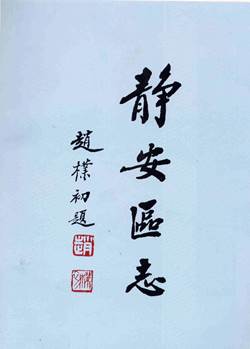 静安區志
趙樸初題
趙